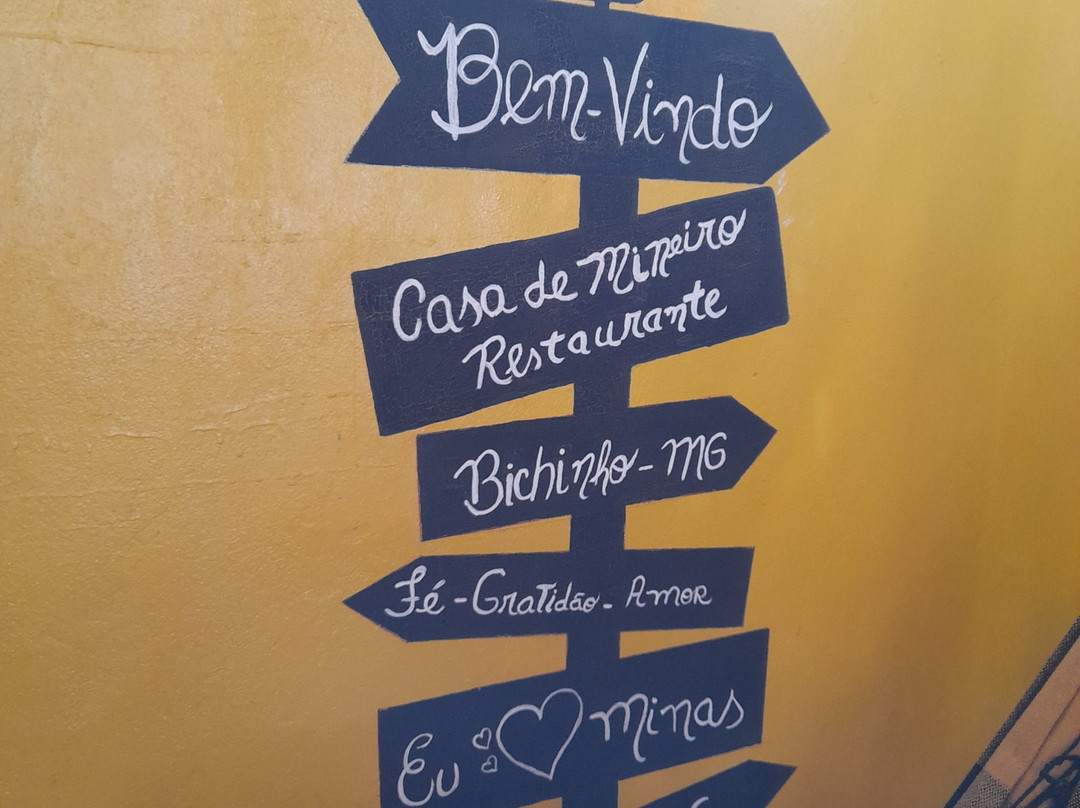 Bem-Vindo
Casa de Mineiro
Restaurante
Bichinho - MG
Fé - Gratidão - Amor
Eu ♡ Minas